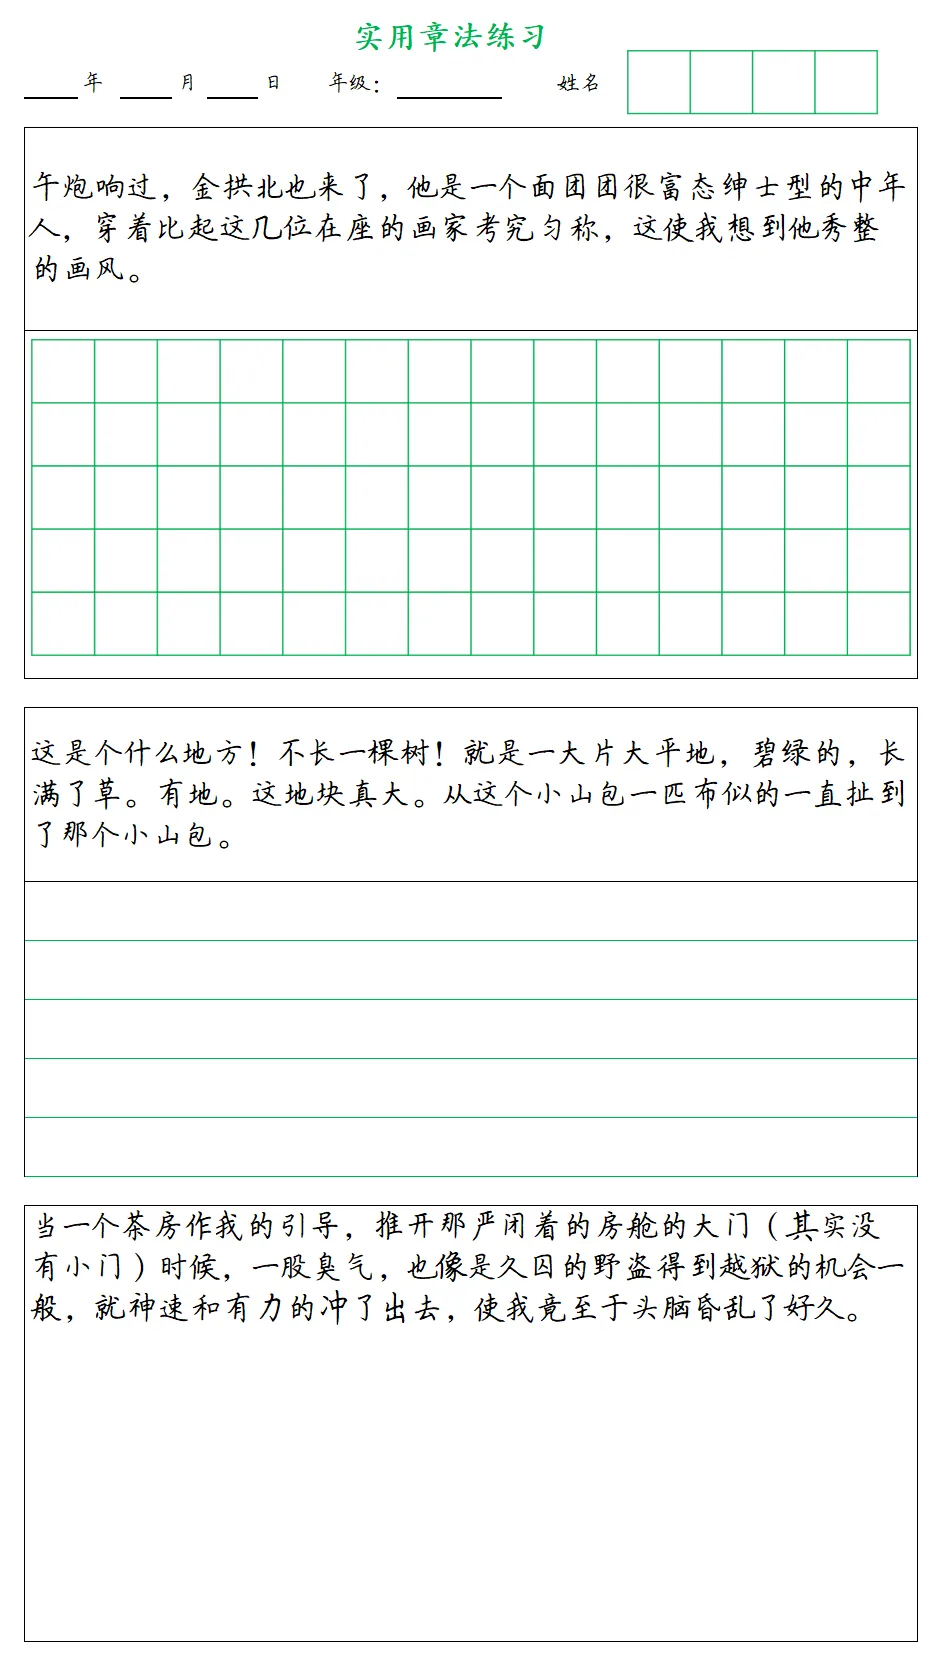 实用章法练习
年 月 日 年级： 姓名
午炮响过，金拱北也来了，他是一个面团团很富态绅士型的中年
人，穿着比起这几位在座的画家考究匀称，这使我想到他秀整
的画风。
这是个什么地方！不长一棵树！就是一大片大平地，碧绿的，长
满了草。有地。这地块真大。从这个小山包一匹布似的一直扯到
了那个小山包。
当一个茶房作我的引导，推开那严闭着的房舱的大门（其实没
有小门）时候，一股臭气，也像是久囚的野盗得到越狱的机会一
般，就神速和有力的冲了出去，使我竟至于头脑昏乱了好久。